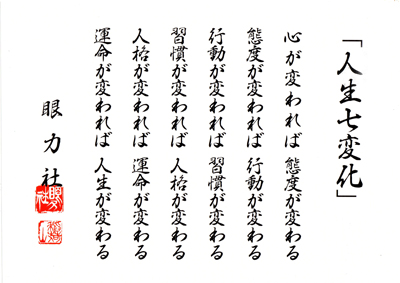 「人生七変化」
心が変われば 態度が変わる
態度が変われば 行動が変わる
行動が変われば 習慣が変わる
習慣が変われば 人格が変わる
人格が変われば 運命が変わる
運命が変われば 人生が変わる
眼力社